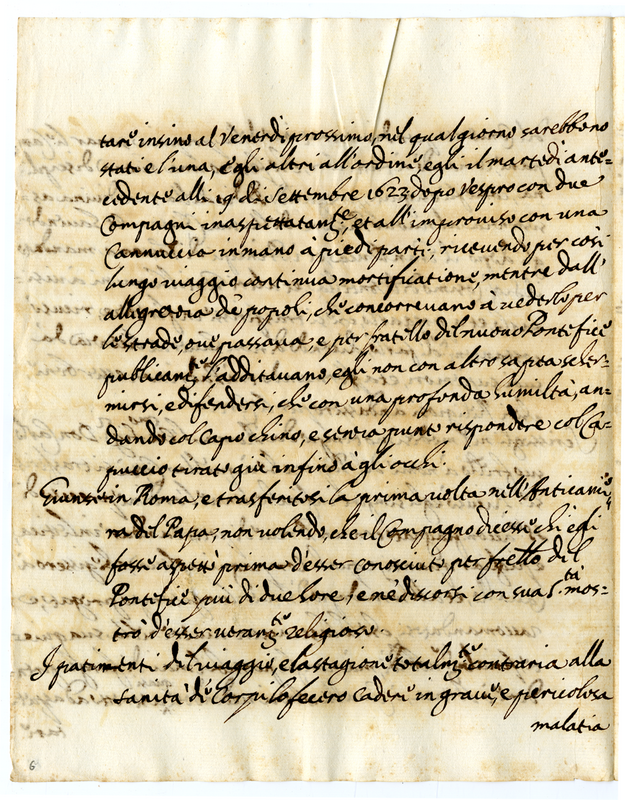 tare insino al Venerdi prossimo, nel qual giorno sarebbono
stati e l'una, e gli altri all'ordine, egli il martedi ante=
cedente alli 19 di Settembre 1623 dopo Vespro con due
Compagni inaspettatam.te, et all'improviso con una
Cannuccia in mano à piedi partì, ricevendo per così
lungo viaggio continua mortificatione, mentre dall'
allegrezza de popoli, che concorrevano à vederlo per
le strade, ove passava, e per fratello del nuovo Pontefice
publicam.te l'additavano, egli non con altro sapea scher=
mirsi, e difendersi, che con una profonda humiltà, an=
dando col Capo chino, e senza punto rispondere col Ca=
puccio tirato giù infino à gli occhi.
Giunse in Roma, e trasferitosi la prima volta nell'Anticame=
ra del Papa, non volendo, che il Compagno dicesse chi egli
fosse aspettò prima d'esser conosciuto per fratello del
Pontefice più di due hore, e ne discorsi con sua S.tà mos=
trò d'esser veram.te religioso.
I patimenti del viaggio, e la stagione totalm.te contraria alla
sanità de Corpi lo fecero cadere in grave, e pericolosa
malatia
6